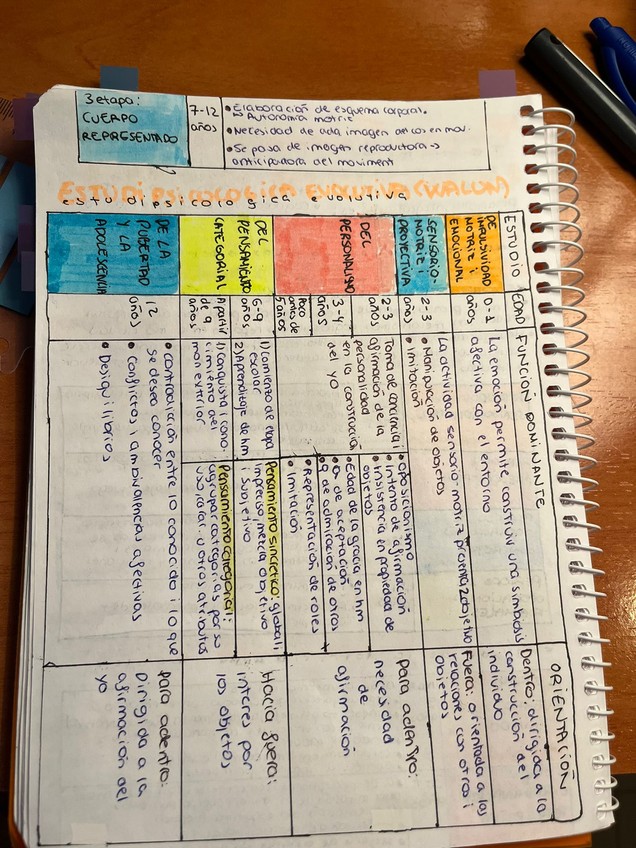 3 etapa:
CUERPO
REPRESENTADO
7-12
años
• Elaboración de esquema corporal.
↳ Autonomía motriz
• Necesidad de
imagen del cos en mov.
• Se pasa de imagen reproductora →
anticipadora del moviment
ESTUDI PSICOLOGICA EVOLUTIVA (WALON)
ESTUDIO
EDAD
FUNCIÓN DOMINANTE
ORIENTACIÓN
DE
IMPULSIVIDAD
MOTRIZ I
EMOCIONAL
0-1
años
La emoción permite construir una simbiosis
afectiva con el entorno
Dentro: dirigida a la
construcción del
individuo
SENSORIO-
MOTRIZ I
PROYECTIVA
2-3
años
La actividad sensorio-motriz
• Manipulación de objetos
• Imitación
Fuera: orientada a las
relaciones con otros i
objetos
DEL
PERSONALISMO
2-3
años
3-4
años
Poco
antes de
5 años
Toma de conciencia i
afirmación de la
personalidad
en la construcción
del yo
• Oposicionismo
• Intento de afirmación
• Insistencia en propiedad de
objetos
• Edad de la gracia en hm
• de aceptación
• de admiración de otros
• Representación de roles
• Imitación
Para adentro:
necesidad
de
afirmación
DEL
PENSAMIENTO
CATEGORIAL
6-9
años
A partir
de 9
años
1) Comienzo de etapa
escolar
2) Aprendizaje de hm
1) Conquista i cono-
cimiento del
mon exterior
Pensamiento sincretico: global i
impreciso, mezcla objetivo
i subjetivo
Pensamiento categorial:
agrupar categorias por su
uso, color u otros atributos
Hacia fuera:
interes por
los objetos
DE LA
PUBERTAD
Y LA
ADOLESCENCIA
12
años
• contradicción entre lo conocido i lo que
se desea conocer
• Conflictos, ambivalencias afectivas
• Desiquilibrios
Para adentro:
Dirigida a la
afirmación del
yo